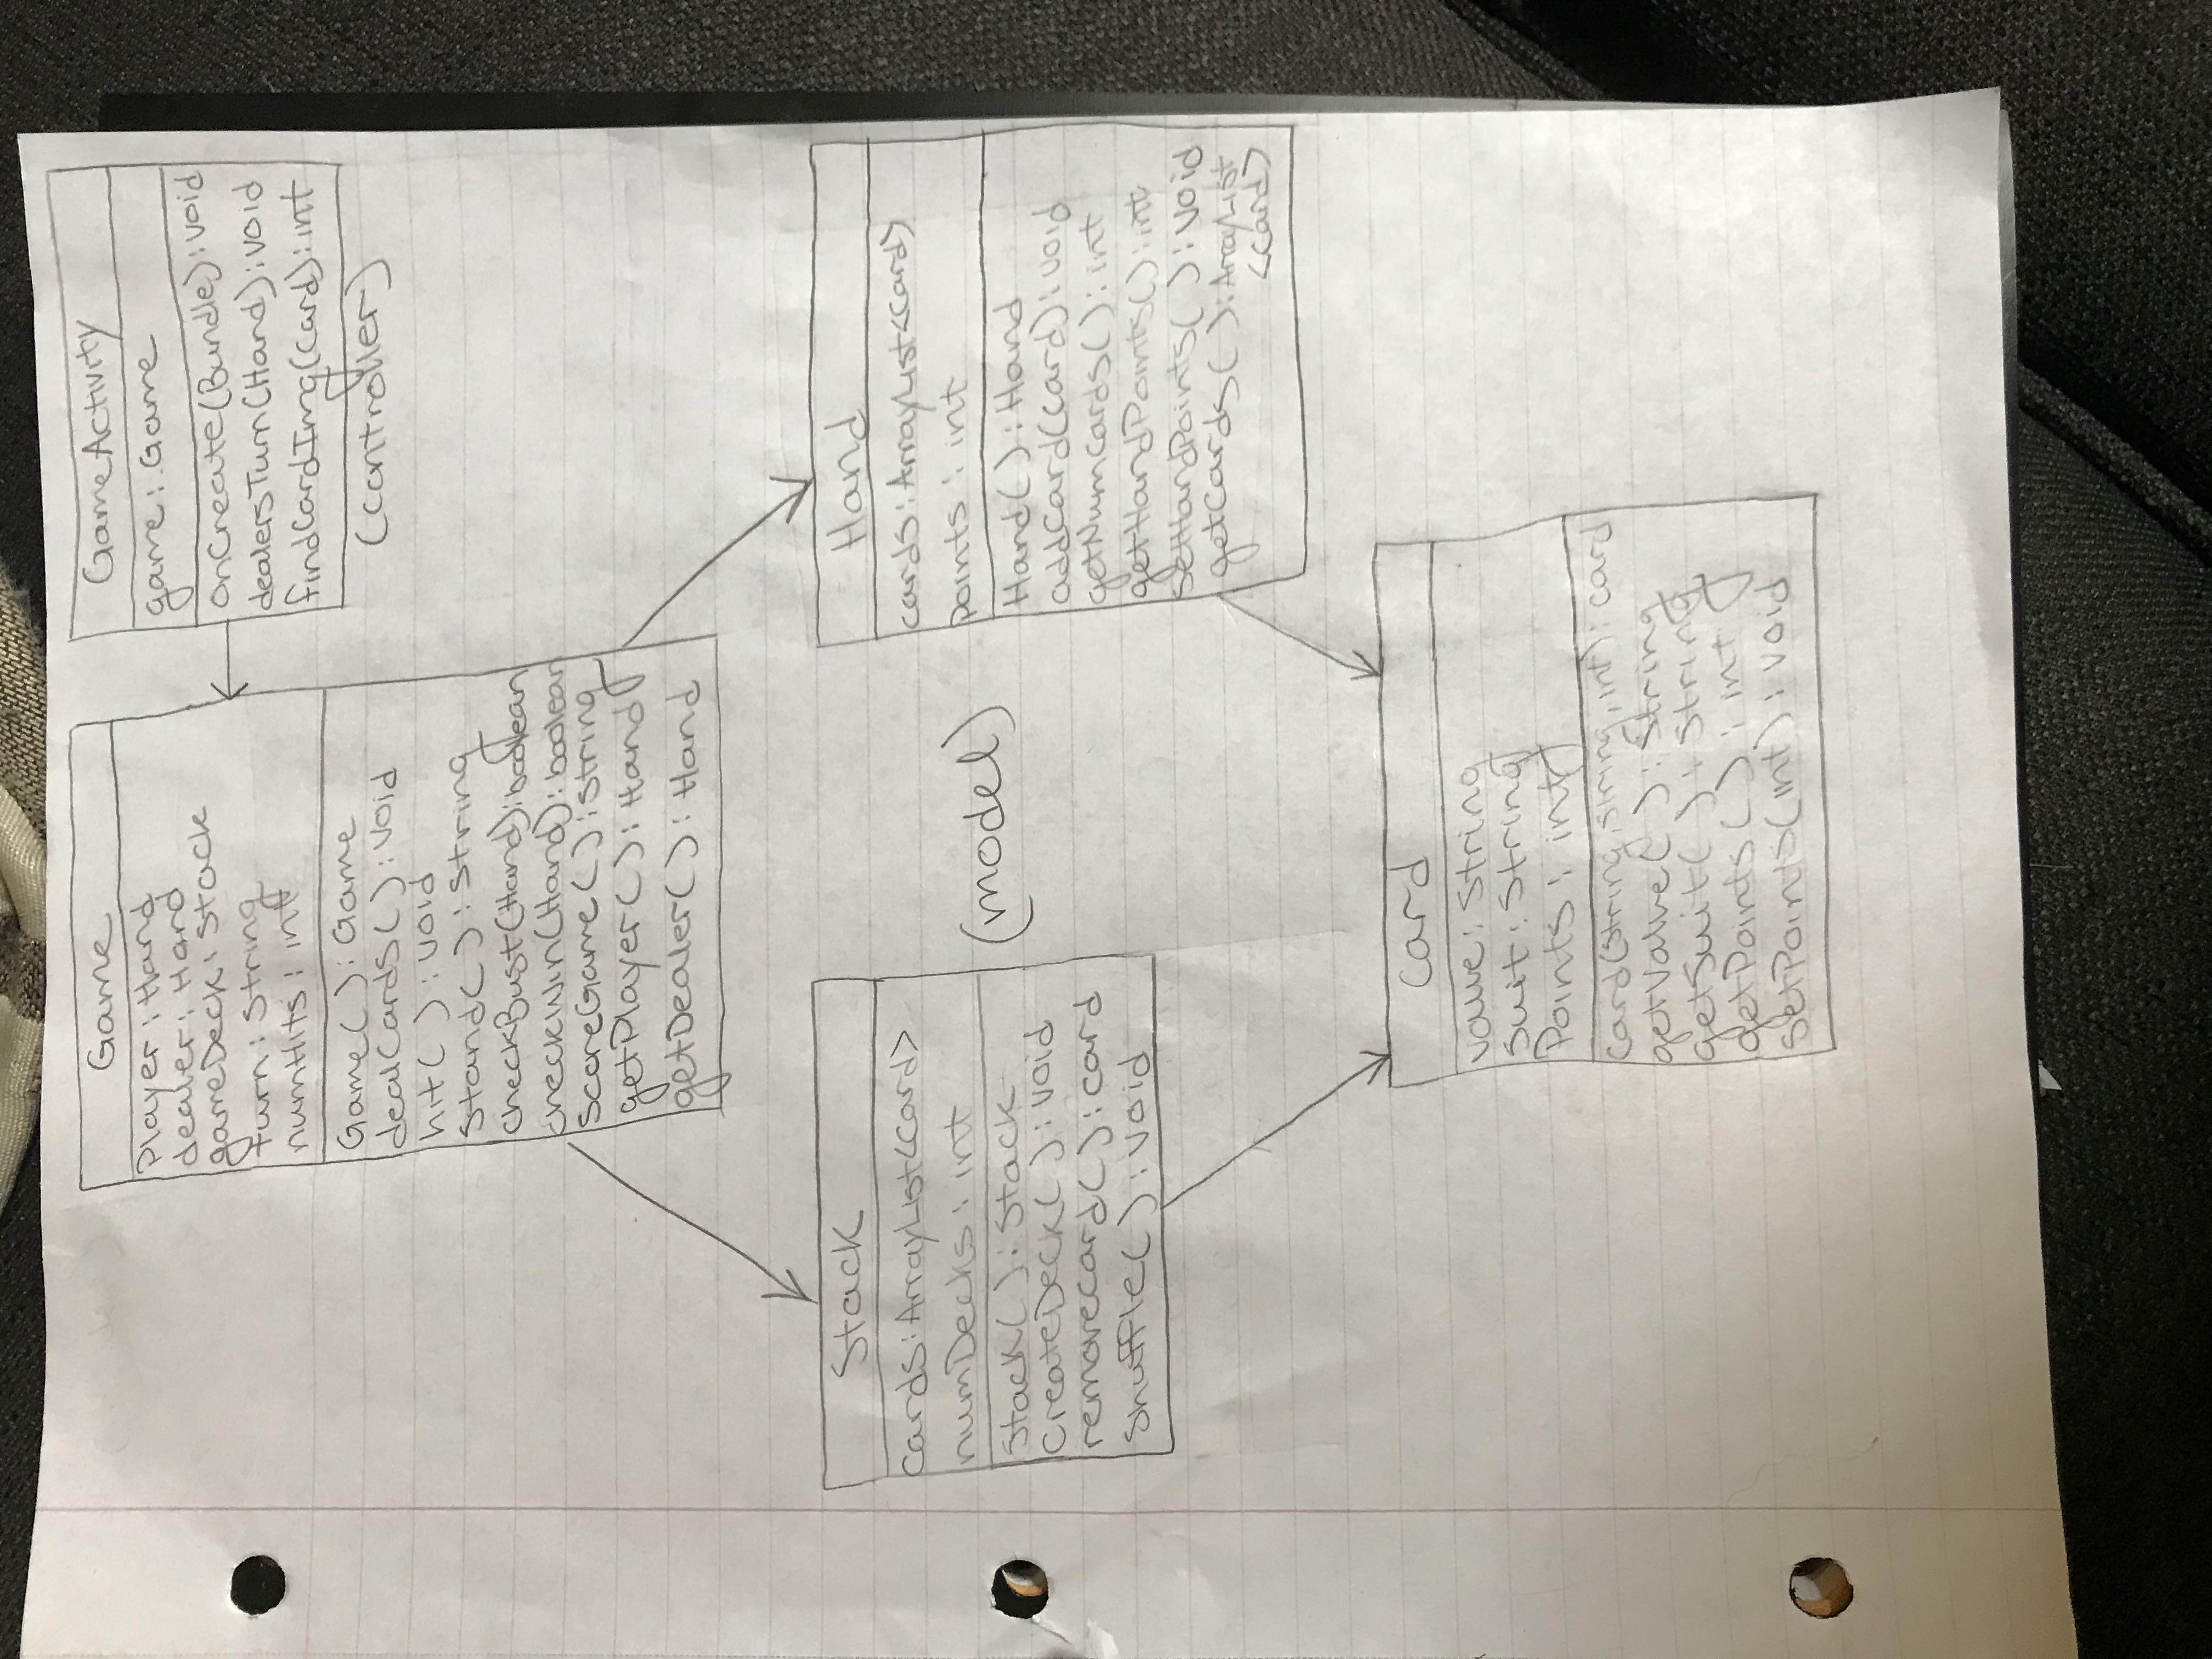 Game
Player : Hand
dealer : Hand
gameDeck : Stack
turn : String
numHits : int
Game( ) : Game
dealCards( ) : void
hit( ) : void
Stand( ) : String
checkBust(Hand) : boolean
checkWin(Hand) : boolean
ScoreGame( ) : String
getPlayer( ) : Hand
getDealer( ) : Hand
GameActivity
game : Game
onCreate(Bundle) : void
dealersTurn(Hand) : void
findCardImg(Card) : int
(controller)
Stack
cards : ArrayList<Card>
numDecks : int
Stack( ) : Stack
CreateDeck( ) : void
removeCard( ) : Card
Shuffle( ) : void
(model)
Hand
cards : ArrayList<Card>
points : int
Hand( ) : Hand
addCard(Card) : void
getNumCards( ) : int
getHandPoints( ) : int
setHandPoints( ) : void
getCards( ) : ArrayList
<Card>
Card
value : String
Suit : String
Points : int
Card(String, String, int) : Card
getValue( ) : String
getSuit( ) : String
getPoints( ) : int
setPoints(int) : void